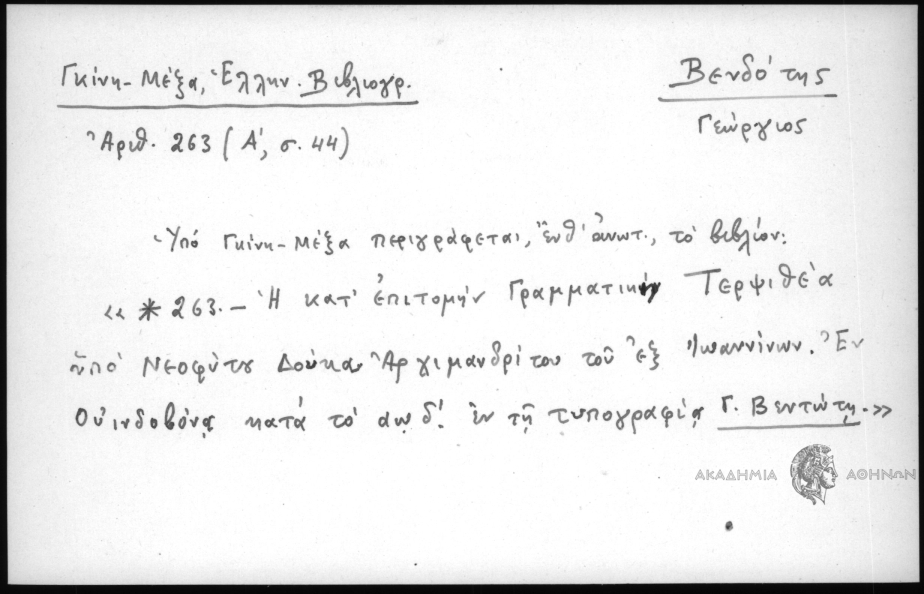 Γκίνη-Μέξα, Ἑλλην. Βιβλιογρ.
Βενδότης
Γεώργιος
Ἀριθ. 263 (Α', σ. 44)
Ὑπό Γκίνη-Μέξα περιγράφεται, ἔνθ' ἀνωτ., τό βιβλίον:
«* 263.- Ἡ κατ' ἐπιτομήν Γραμματική Τερψιθέα
ὑπό Νεοφύτου Δούκα Ἀρχιμανδρίτου τοῦ ἐξ Ἰωαννίνων. Ἐν
Οὐινδοβόνᾳ κατά τό αωδ'. ἐν τῇ τυπογραφίᾳ Γ. Βεντώτη.»
ΑΚΑΔΗΜΙΑ ΑΘΗΝΩΝ